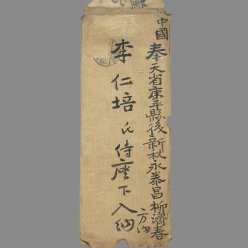 中國
奉天省康平縣後新秋永泰昌柳濟春
方內
李仁培氏侍座下入納